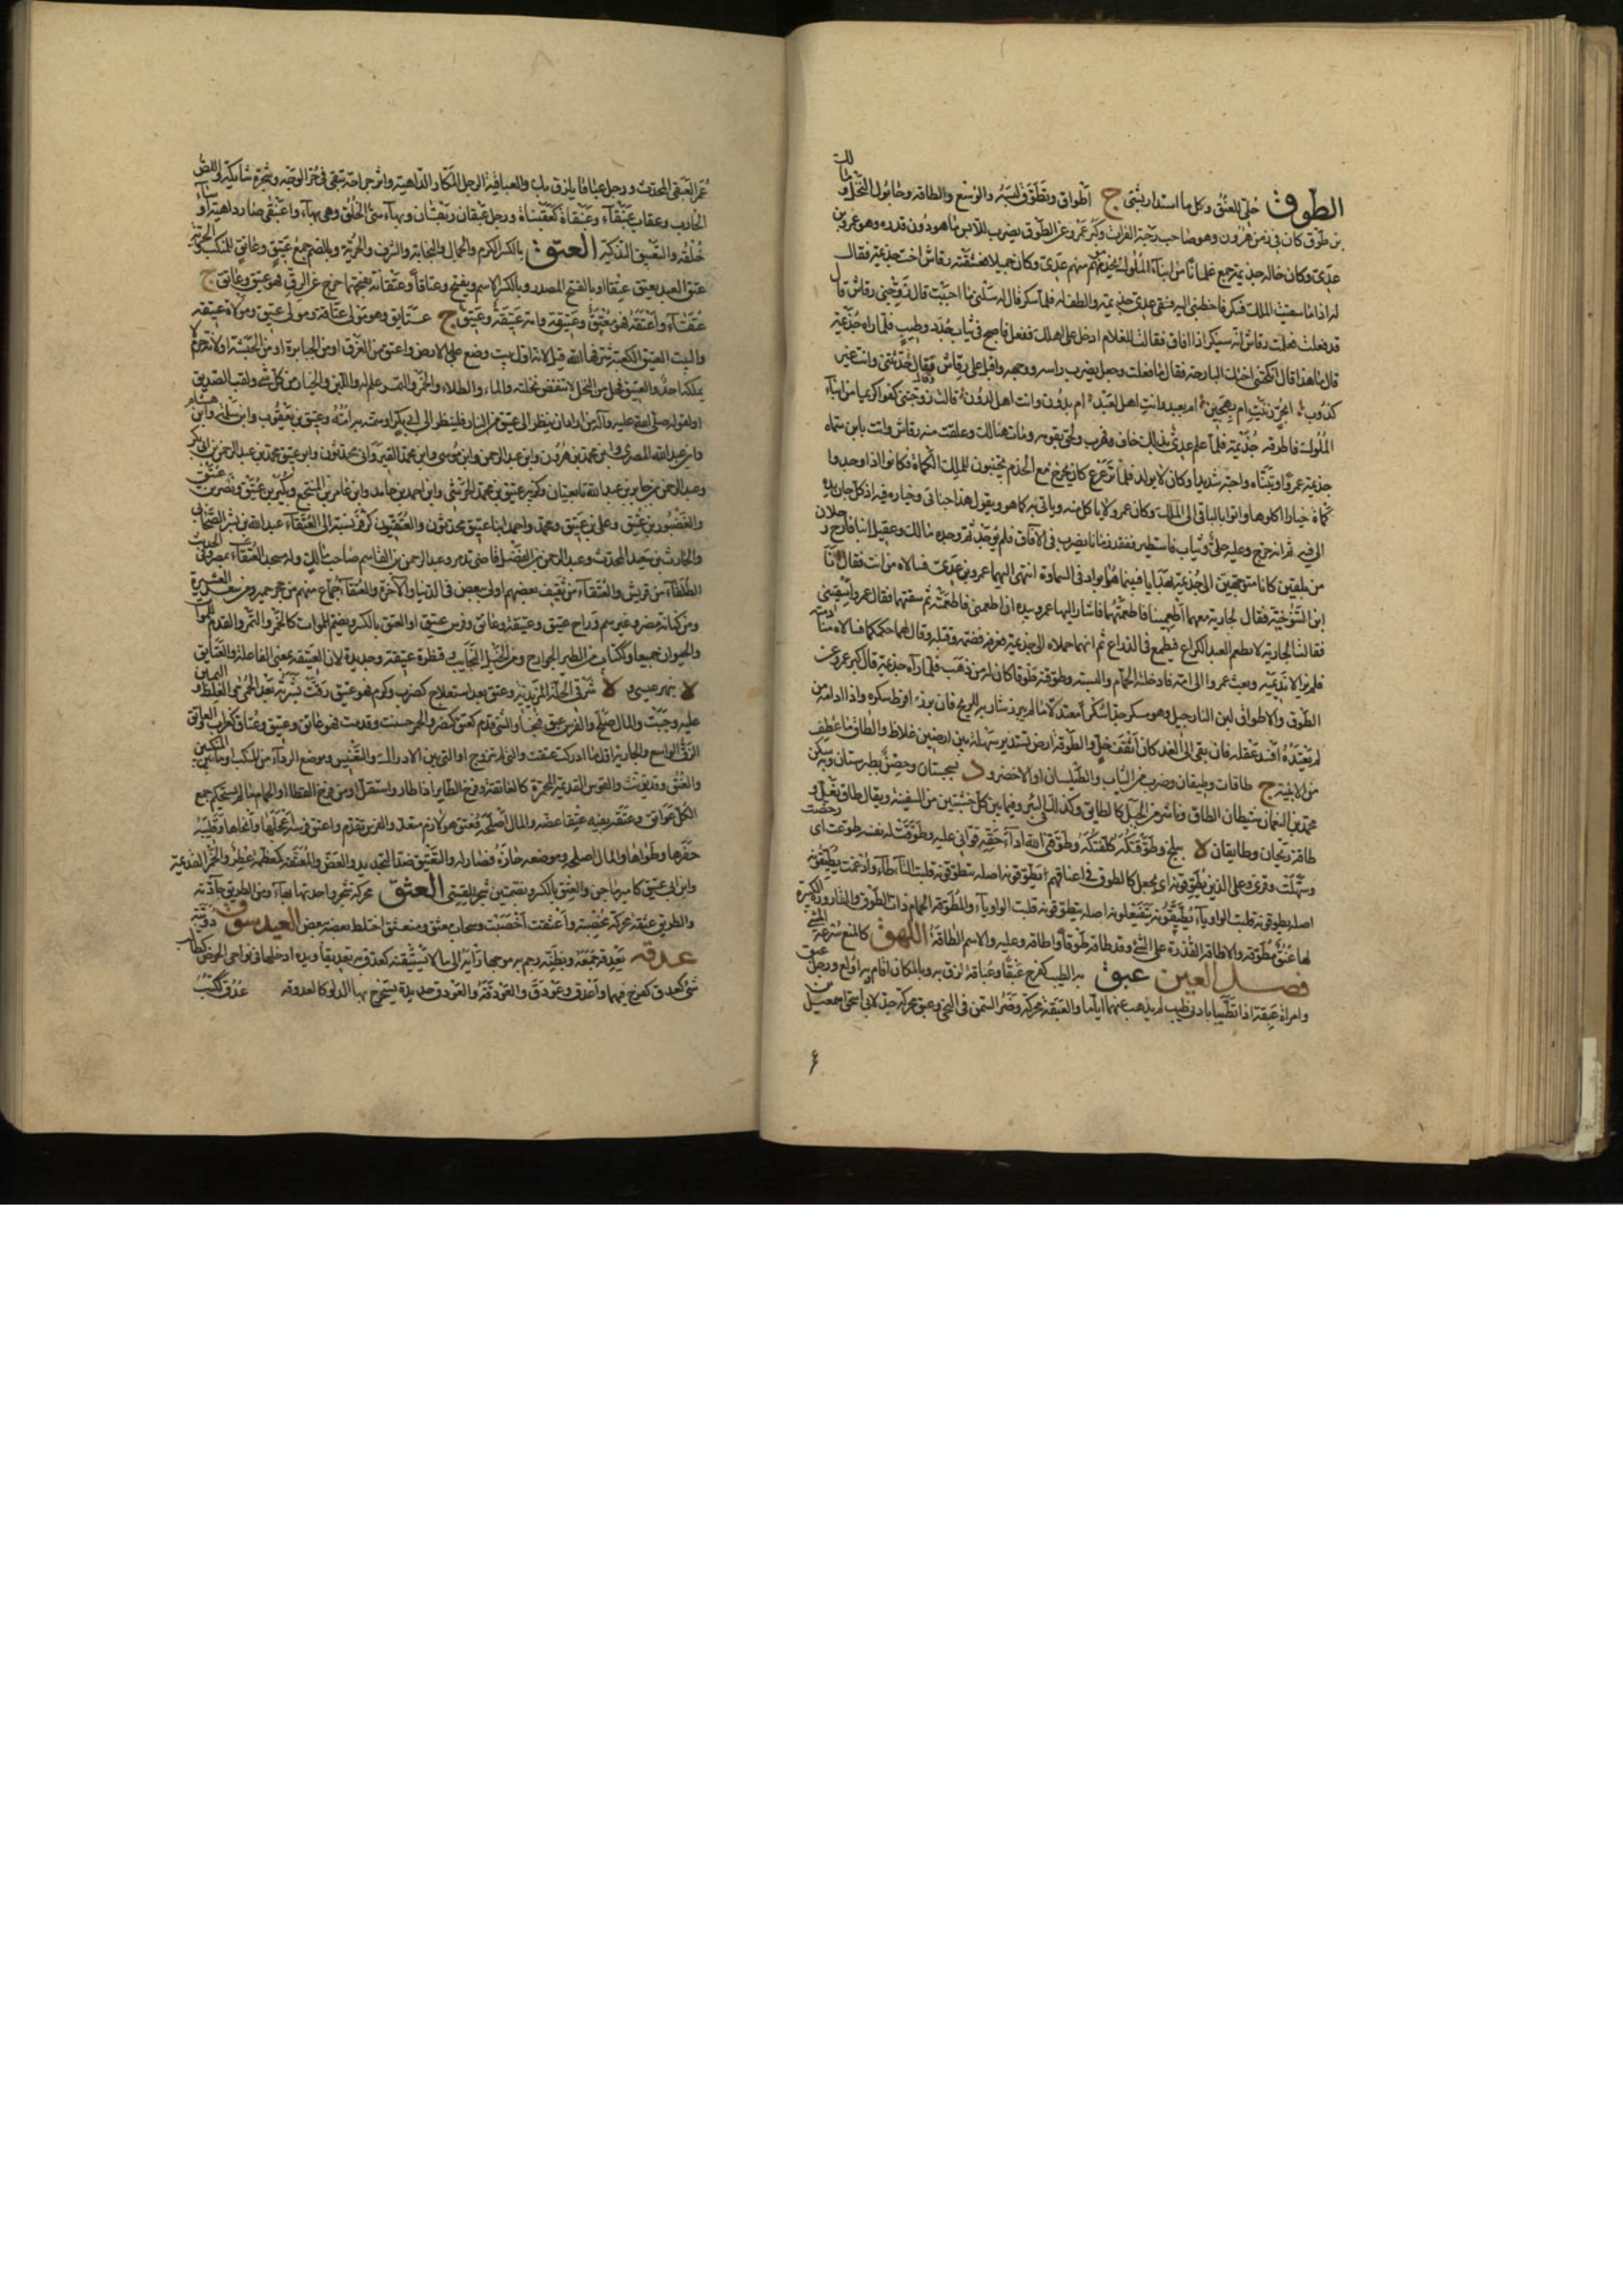 الطوق حلي للعنق وكل ما استدار بشيء ج اطواق وتطوق لبسه والوسع والطاقة وحابول النخل ومالك
بن طوق كان في زمن هرون وهو صاحب رحبة الفرات وكبر عمرو عن الطوق يضرب للابس ما هو دون قدره وهو عمرو بن
عدي وكان خاله جذيمة جمع غلمانا من ابناء الملوك يخدمونه منهم عدي وكان جميلا فعشقته رقاش اخت جذيمة فقالت
له اذا سقيت الملك فسكر فاخطبني اليه فسقى عدي جذيمة والطف له فلما سكر قال له سلني ما احببت قال زوجني رقاش قال
قد فعلت فعلمت رقاش انه سينكر اذا افاق فقالت للغلام ادخل على اهلك ففعل فاصبح في ثياب جدد وطيب فلما راه جذيمة
قال ما هذا قال انكحتني اختك البارحة فقال ما فعلت وجعل يضرب راسه ووجهه واقبل على رقاش وقال حدثيني وانت غير
كذوب ابحر زنيت ام بهجين ام بعبد وانت اهل لعبد ام بدون وانت اهل لدون قالت زوجتني كفوا كريما من ابناء
الملوك فاطرق جذيمة فلما علم عدي بذلك خاف فهرب ولحق بقومه ومات هنالك وعلقت منه رقاش واتت بابن سماه
جذيمة عمرا وتبناه واحبه شديدا وكان لا يولد له فلما ترعرع كان يخرج مع الخدم يجتنون للملك الكماة فكانوا اذا وجدوا
كماة خيارا اكلوها واتوا بالباقي الى الملك وكان عمرو لا ياكل منه وياتي به كما هو ويقول هذا جناي وخياره فيه اذ كل جان يده
الى فيه ثم انه خرج وعليه حلي وثياب فاستطير ففقد زمانا يضرب في الآفاق فلم يوجد ثم وجده مالك وعقيل ابنا فارج رجلان
من بلقين كانا متوجهين الى جذيمة بهدايا فبينما هما بواد في السماوة انتهى اليهما عمرو بن عدي فسالاه من انت فقال انا
ابن التنوخية فقال لجارية معهما اطعمينا فاطعمتهما فاشار اليها عمرو بيده ان اطعميني فاطعمته ثم سقتهما فقال عمرو اسقيني
فقالت الجارية لا تطعم العبد الكراع فيطمع في الذراع ثم انهما حملاه الى جذيمة فعرفه فضمه وقبله وقال لهما حكمكما فسالاه منادمته
فلم يزالا نديميه وبعث عمروا الى امه فادخلته الحمام والبسته وطوقته طوقا كان له من ذهب فلما رآه جذيمة قال كبر عمرو عن
الطوق والاطواق لبن النارجيل وهو مسكر جدا سكرا معتدلا ما لم يبرز شاربه للريح فان برز افرط سكره واذا ادامه من
لم يعتده افسد عقله فان بقي الى الغد كان اثقف خل والطوقة ارض تستدير سهلة بين ارضين غلاظ والطاق ما عطف
من الابنية ج طاقات وطيقان وضرب من الثياب والطيلسان او الاخضر ود بسجستان وحصن بطبرستان وبه سكن
محمد بن النعمان شيطان الطاق وناشز من الجبل كالطائق وكذلك في البئر وفيما بين كل خشبتين من السفينة ويقال طاق نعل و
طاقة ريحان وطايقان لا ببلخ وطوقتكه كلفتكه وطوقني الله اداء حقه قواني عليه وطوقت له نفسه طوعت اي رخصت
وسهلت وقرئ وعلى الذين يطوقونه اي يجعل كالطوق في اعناقهم يطوقونه اصله يتطوقونه قلبت التاء طاء وادغمت يطيقونه
اصله يطوقونه قلبت الواو ياء يطيقونه يتفيعلونه اصله يتطيوقونه قلبت الواو ياء والمطوقة الحمامة ذات الطوق والقارورة الكبيرة
لها عنق مطوقة والاطاقة القدرة على الشيء وقد طاقه طوقا واطاقه وعليه والاسم الطاقة الطهق كالمنع سرعة المشي
فصل العين عبق به الطيب كفرح عبقا وعباقة لزق به وبالمكان اقام به اولع ورجل عبق
وامراة عبقة اذا تطيبا بادنى طيب لم يذهب عنهما اياما والعبقة محركة وضر السمن في النحي وعبق محركة جد لابي اسحق اسمعيل بن
عمر العبقي المحدث ورجل عباقاء يلزق بك والعباقية الرجل المكار الداهية واثر جراحة تبقى في حر الوجه وشجرة شائكة واللص
الخارب وعقاب عبنقاء وعبنقاة كعقنباة ورجل عبقان ربقان وبهاء سيئ الخلق وهي بهاء واعبنقى صار داهية او ساء
خلقه والتعبيق التذكية العتق بالكسر الكرم والجمال والنجابة والشرف والحرية وبالضم جمع عتيق وعاتق للمنكب والحرية
عتق العبد يعتق عتقا او بالفتح المصدر وبالكسر الاسم ويفتح وعتاقا وعتاقة بفتحهما خرج عن الرق فهو عتيق وعاتق ج
عتقاء واعتقه فهو معتق وعتيق وامة عتيق وعتيقة ج عتايق وهو مولى عتاقة ومولى عتيق ومولاة عتيقة
والبيت العتيق الكعبة شرفها الله قيل لانه اول بيت وضع على الارض واعتق من الغرق او من الجبابرة او من الحبشة او لانه حر لم
يملكه احد والعتيق فحل من النخل لا تنفض نخلته والماء والطلاء والخمر والتمر علم له واللبن والخيار من كل شيء ولقب الصديق
او لقوله صلى الله عليه وآله من اراد ان ينظر الى عتيق من النار فلينظر الى ابي بكر او سمته به امه وعتيق بن يعقوب وابن سلمة وابن هشام
وابن عبد الله المصري وابن محمد بن هرون وابن عبد الرحمن وابن موسى وابن محمد القيرواني محدثون وابو عتيق محمد بن عبد الرحمن بن ابي بكر
وعبد الرحمن بن جابر بن عبد الله تابعيان وكزبير عتيق بن محمد الحرشي وابن احمد بن حامد وابن عامر بن المنتجع وبكير بن عتيق ونصر بن عتيق
والغضور بن عتيق وعلي بن عتيق ومحمد واحمد ابنا عتيق محدثون والعتقيون كزفر نسبة الى العتقاء عبد الله بن بشر الصحابي
والحارث بن سعيد المحدث وعبد الرحمن بن الفضل قاضي تدمر وعبد الرحمن بن القاسم صاحب مالك وله مسجد العتقاء بمصر وفي الحديث
الطلقاء من قريش والعتقاء من ثقيف بعضهم اولى ببعض في الدنيا والآخرة والعتقاء جماع منهم من حجر حمير ومن سعد العشيرة
ومن كنانة مضر وغيرهم وراح عتيق وعتيقة وعاتق وفرس عتيق او العتق بالكسر ويضم للموات كالخمر والتمر والقدم للموات
والحيوان جميعا وككتاب من الطير الجوارح ومن الخيل النجايب وقنطرة عتيقة وجديدة لان العتيقة بمعنى الفاعلة والعتايق
لا بنهر عيسى و لا شرقي الحلة المزيدية وعتق بعد استعلاج كضرب وكرم فهو عتيق رقت بشرته بعد الجفاء والغلظ واليمين
عليه وجبت والمال صلح والفرس سبق فنجا والشيء قدم كعتق كنصر والخمر حسنت وقدمت فهو عاتق وعتيق وعتاق كغراب والعاتق
الزق الواسع والجارية اول ما ادركت عتقت والتي لم تتزوج او التي بين الادراك والتعنيس وموضع الرداء من المنكب او ما بين المنكبين
والعنق وقد يؤنث والقوس القديمة المحمرة كالعاتقة وفرخ الطاير اذا طار واستقل او من فرخ القطا او الحمام ما لم يستحكم جمع
الكل عواتق وعتقه بفيه عتقا عضه والمال اصلحه فعتق هو لازم متعد والفرس تقدم واعتق فرسه اعجلها وانجاها وقليبه
حفرها وطواها والمال اصلحه وموضعه حازه فصار له والتعتيق ضد التجديد والعض والمعتقة كمعظمة عطر والخمر القديمة
وابن ابي عتيق كامير ماجن والعتق بالكسر وبضمتين شجر للقسي العثق محركة شجر واحدتها بهاء ومن الطريق جادته
والطريق عثقة محركة مخصبة واعثقت اخصبت وسحاب متعثق ومنعثق اختلط بعضه ببعض العيدسوق دويبة
عدقه يعدقه جمعه وبظنه رجم به موجها رايه الى ما لا يستيقنه كعدق به تعديقا ويده ادخلها في نواحي الحوض كطالب
شيء كعدق كفرح فيهما واعدق وعودق والعودقة والعودق حديدة يستخرج بها الدلو كالعدوقة عدق ككتب